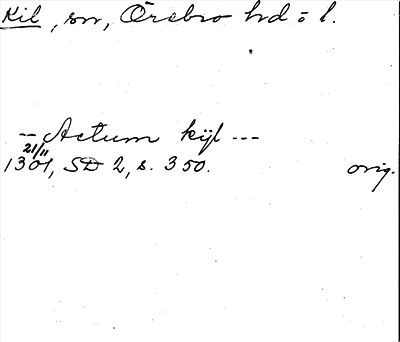 Kil, sn, Örebro hd o l.
-- Actum kijl ---
21/11
1301, SD 2, s. 350. orig.